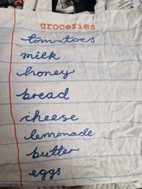 groceries
tomatoes
milk
honey
bread
cheese
lemonade
butter
eggs